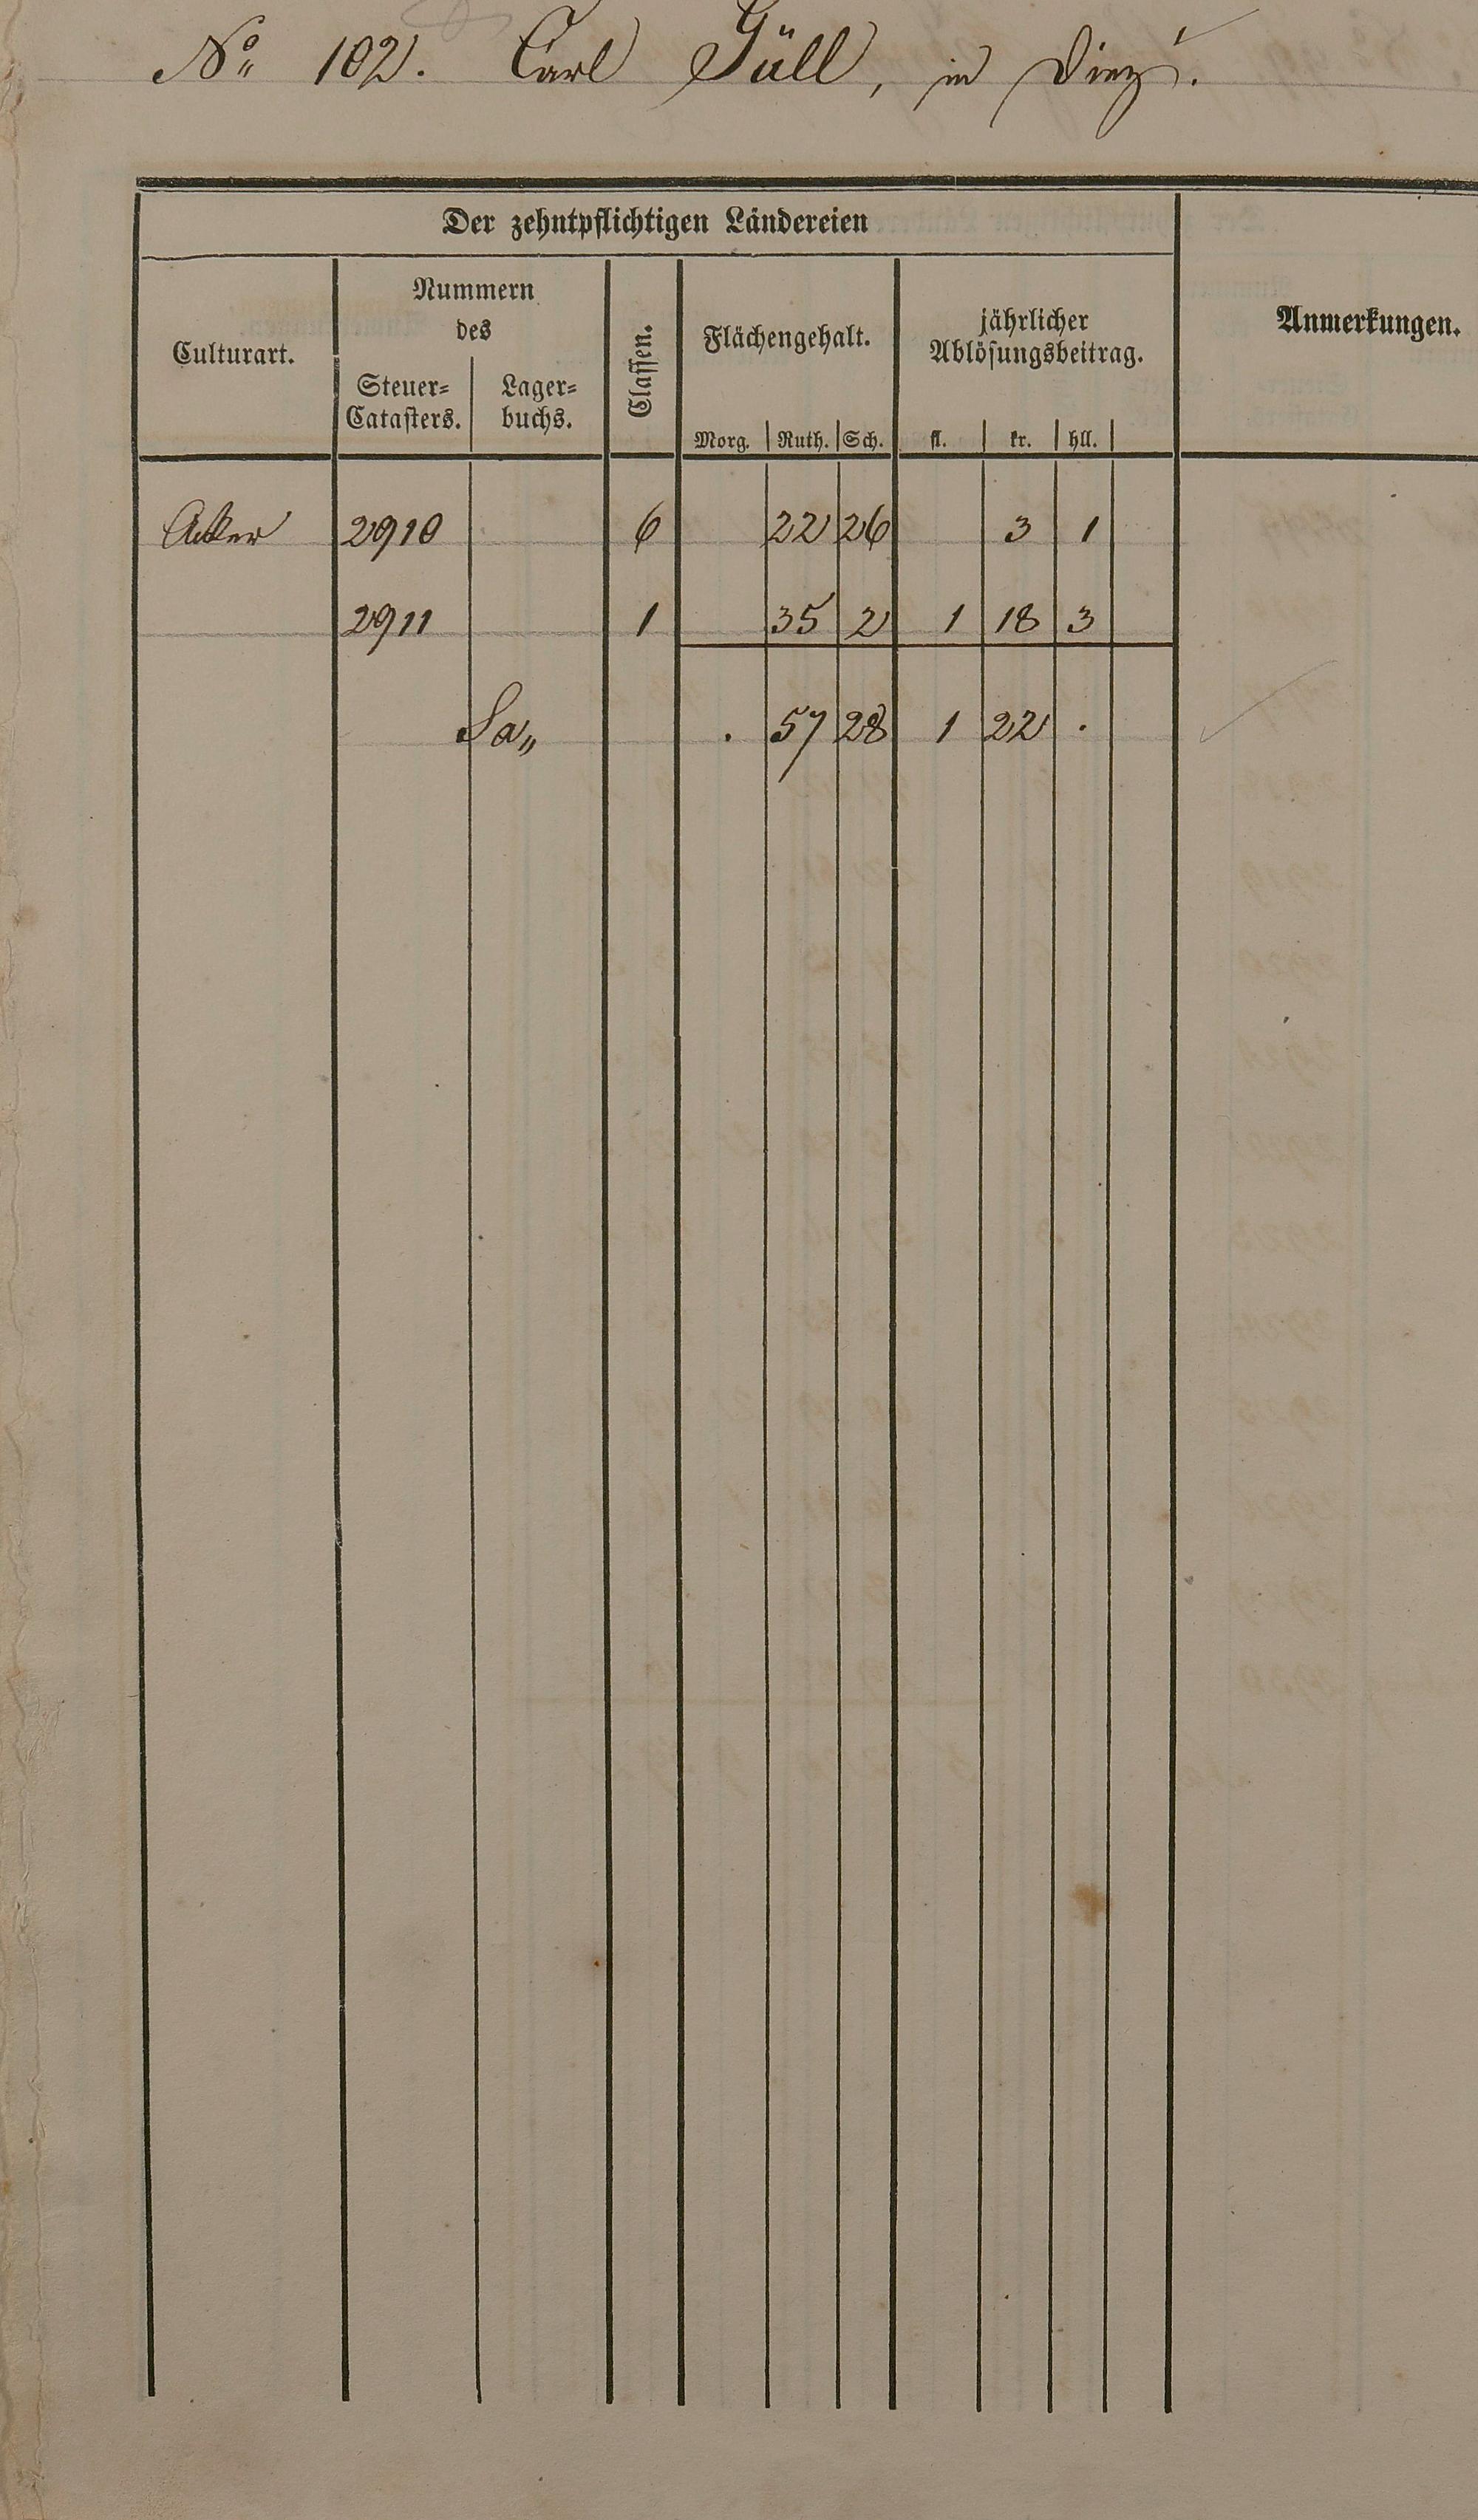 No 102. Carl Güll, in Diez.
Der zehntpflichtigen Ländereien
Culturart.
Nummern
des
Steuer=
Catasters.
Lager=
buchs.
Classen.
Flächengehalt.
Morg. Ruth. Sch.
jährlicher
Ablösungsbeitrag.
fl. kr. hll.
Anmerkungen.
Acker 2910 6 22 26 3 1
2911 1 35 2 1 18 3
Sa„ . 57 28 1 22 .